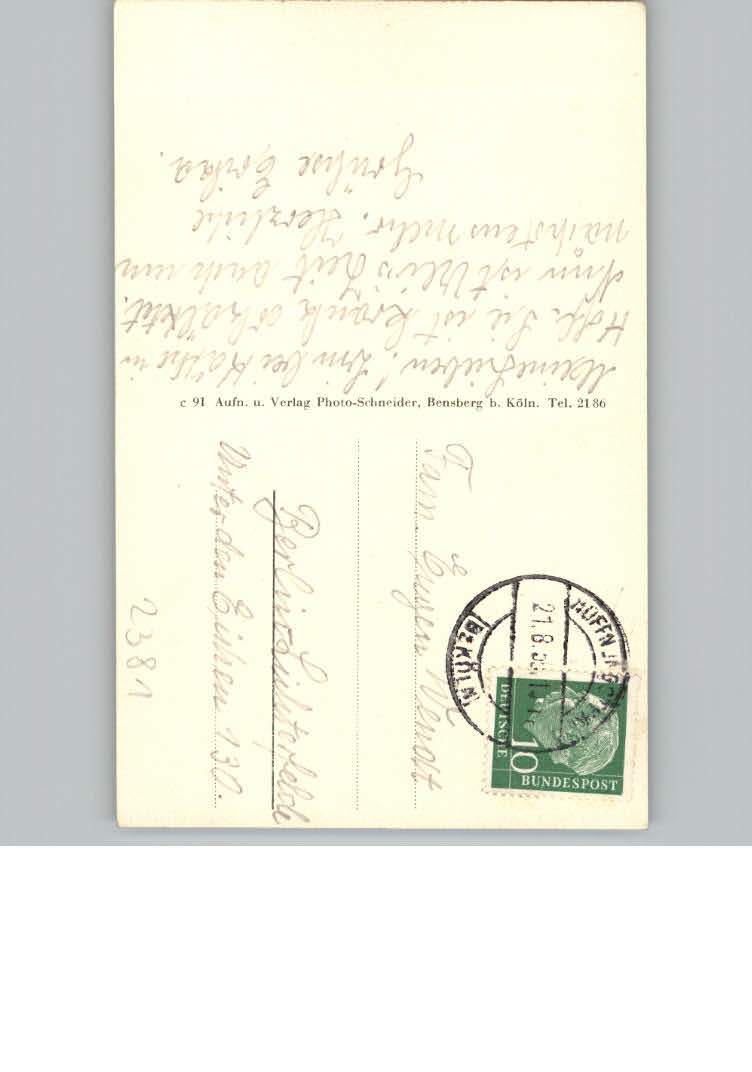 Meine Lieben! Bin bei Käthe in
Hoff. Sie ist krank
Nun ist Zeit auch um
nächstens mehr. Herzliche
Grüsse Erika.
c 91 Aufn. u. Verlag Photo-Schneider, Bensberg b. Köln. Tel. 2186
Fam. Eugen Wendt
Berlin-Lichterfelde
Unter den Eichen 130.
2381
(Bz KÖLN)
21.8.
DEUTSCHE
BUNDESPOST
10